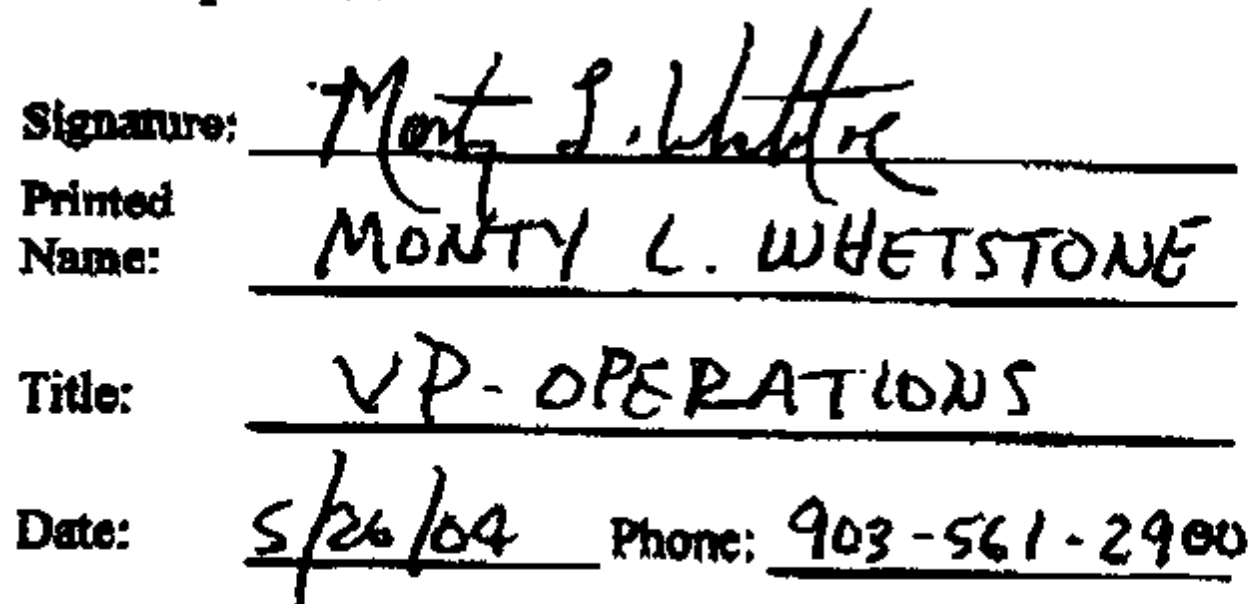 Signature: Monty L. Whetstone
Printed
Name: MONTY L. WHETSTONE
Title: VP - OPERATIONS
Date: 5/26/04 Phone: 903-561-2900